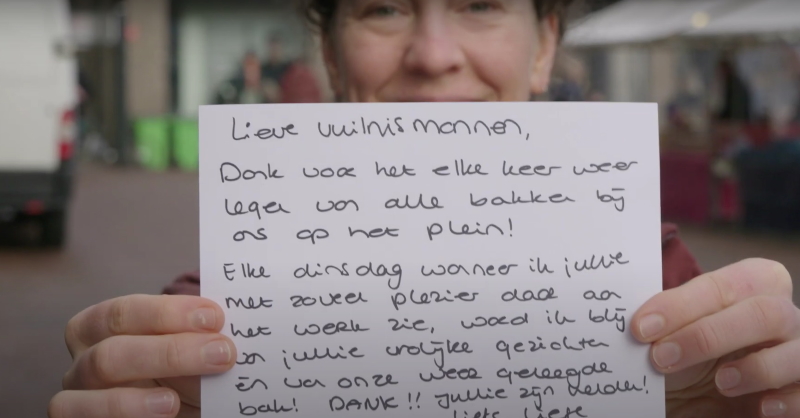 Lieve vuilnismannen,
Dank voor het elke keer weer
legen van alle bakken bij
ons op het plein!
Elke dinsdag wanneer ik jullie
met zoveel plezier daar aan
het werk zie, word ik blij
van jullie vrolijke gezichten
Én van onze weer geleegde
bak! DANK!! Jullie zijn helden!
Liefs Liese